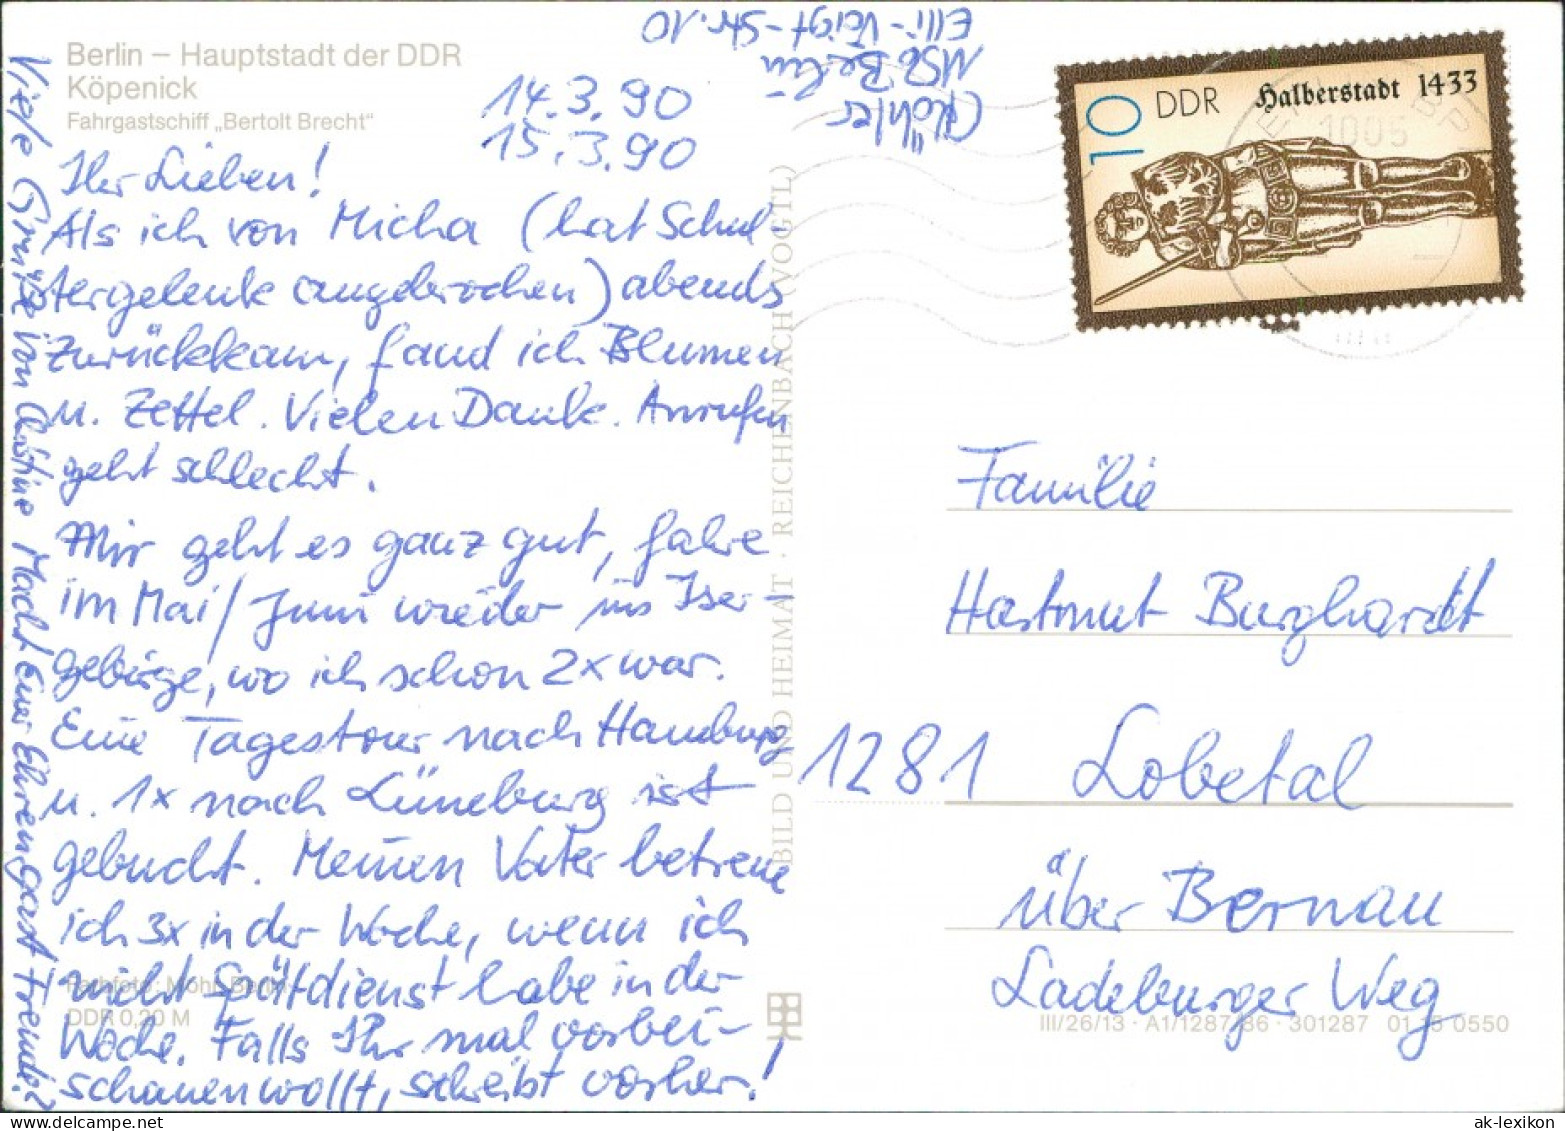 Berlin – Hauptstadt der DDR
Köpenick
Fahrgastschiff „Bertolt Brecht“
14.3.90
15.3.90
Köhler
1156 Berlin
Elli-Voigt-Str. 10
Ihr Lieben!
Als ich von Micha (hat Schul-
tergelenk angebrochen) abends
zurückkam, fand ich Blumen
u. Zettel. Vielen Dank. Anrufen
geht schlecht.
Mir geht es ganz gut, fahre
im Mai/Juni wieder ins Iser-
gebirge, wo ich schon 2x war.
Eine Tagestour nach Hamburg
u. 1x nach Lüneburg ist
gebucht. Meinen Vater betreue
ich 3x in der Woche, wenn ich
nicht Spätdienst habe in der
Woche. Falls Ihr mal vorbei-
schauen wollt, schreibt vorher!
Viele Grüße von Macht Euer Ehrengast Freude?
Farbfoto: Möhr, Berlin
DDR 0,20 M
BILD UND HEIMAT · REICHENBACH (VOGTL)
10 DDR Halberstadt 1433
1085
Familie
Hartmut Burghardt
1281 Lobetal
über Bernau
Ladeburger Weg
III/26/13 · A1/1287/86 · 301287 0550
ak-lexikon.com